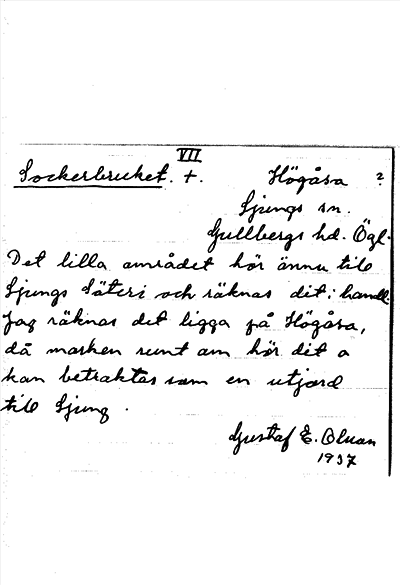 VII
Sockerbruket. +. Högåsa ?
Ljungs sn.
Gullbergs hd. Ögl.
Det lilla området hör ännu till
Ljungs Säteri och räknas dit i handl.
Jag räknas det ligga på Högåsa,
då marken runt om hör dit o
kan betraktas som en utjord
till Ljung.
Gustaf E. Olsson
1937